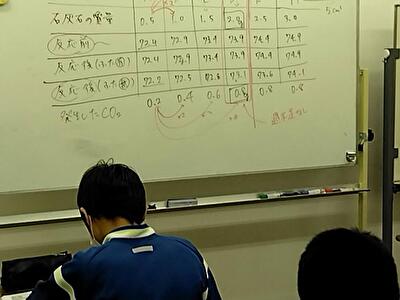 石灰石の質量 0.5 1.0 1.5 2.0 2.5 3.0
反応前 72.4 72.9 73.4 73.9 74.4 74.9
反応後(ふた閉) 72.4 72.9 73.4 73.9 74.4 74.9
反応後(ふた開) 72.2 72.5 72.8 73.1 73.6 74.1
発生したCO₂ 0.2 0.4 0.6 0.8 0.8 0.8